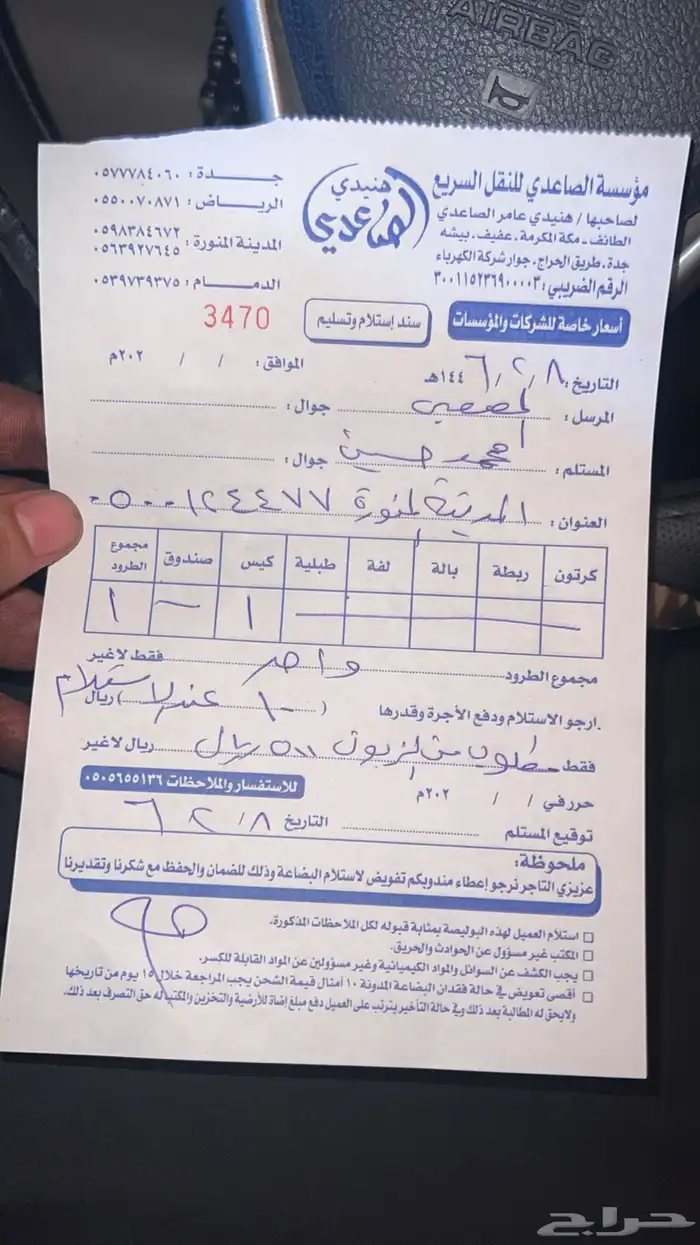 AIRBAG
مؤسسة الصاعدي للنقل السريع
لصاحبها / هنيدي عامر الصاعدي
الطائف - مكة المكرمة - عفيف - بيشه
جدة - طريق الحراج - جوار شركة الكهرباء
الرقم الضريبي : ٣٠٠١١٥٢٣٦٩٠٠٠٠٣
هنيدي
الصاعدي
جـــدة : ٠٥٧٧٧٨٤٠٦٠
الرياض : ٠٥٥٠٠٧٠٨٧١
المدينة المنورة : ٠٥٩٨٣٨٤٦٧٢
٠٥٦٣٩٢٧٦٤٥
الدمـــام : ٠٥٣٩٧٣٩٣٧٥
أسعار خاصة للشركات والمؤسسات
سند إستلام وتسليم
3470
التاريخ : ٨ / ٢ / ٦ ١٤٤هـ
الموافق : / / ٢٠٢م
المرسل : جوال :
المستلم : محمد حسين جوال :
العنوان : المدينة المنورة ٠٥٠٠١٢٤٤٧٧
كرتون ربطة بالة لفة طبلية كيس صندوق مجموع الطرود
١ ١
مجموع الطرود واحد فقط لاغير
.ارجو الاستلام ودفع الأجرة وقدرها ( ١٠٠ عند الاستلام ) ريال
فقط مطلوب من الزبون ريال ريال لاغير
حرر في / / ٢٠٢م
للاستفسار والملاحظات ٠٥٠٥٦٥٥١٣٦
توقيع المستلم التاريخ ٨ / ٢ ٦
ملحوظة :
عزيزي التاجر نرجو إعطاء مندوبكم تفويض لاستلام البضاعة وذلك للضمان والحفظ مع شكرنا وتقديرنا
استلام العميل لهذه البوليصة بمثابة قبوله لكل الملاحظات المذكورة.
المكتب غير مسؤول عن الحوادث والحريق.
يجب الكشف عن السوائل والمواد الكيميائية وغير مسؤولين عن المواد القابلة للكسر.
أقصى تعويض في حالة فقدان البضاعة المدونة ١٠ أمثال قيمة الشحن يجب المراجعة خلال ١٥ يوم من تاريخها
ولايحق له المطالبة بعد ذلك وفي حالة التأخير يترتب على العميل دفع مبلغ إضافة للأرضية والتخزين والمكتب له حق التصرف بعد ذلك.
حراج